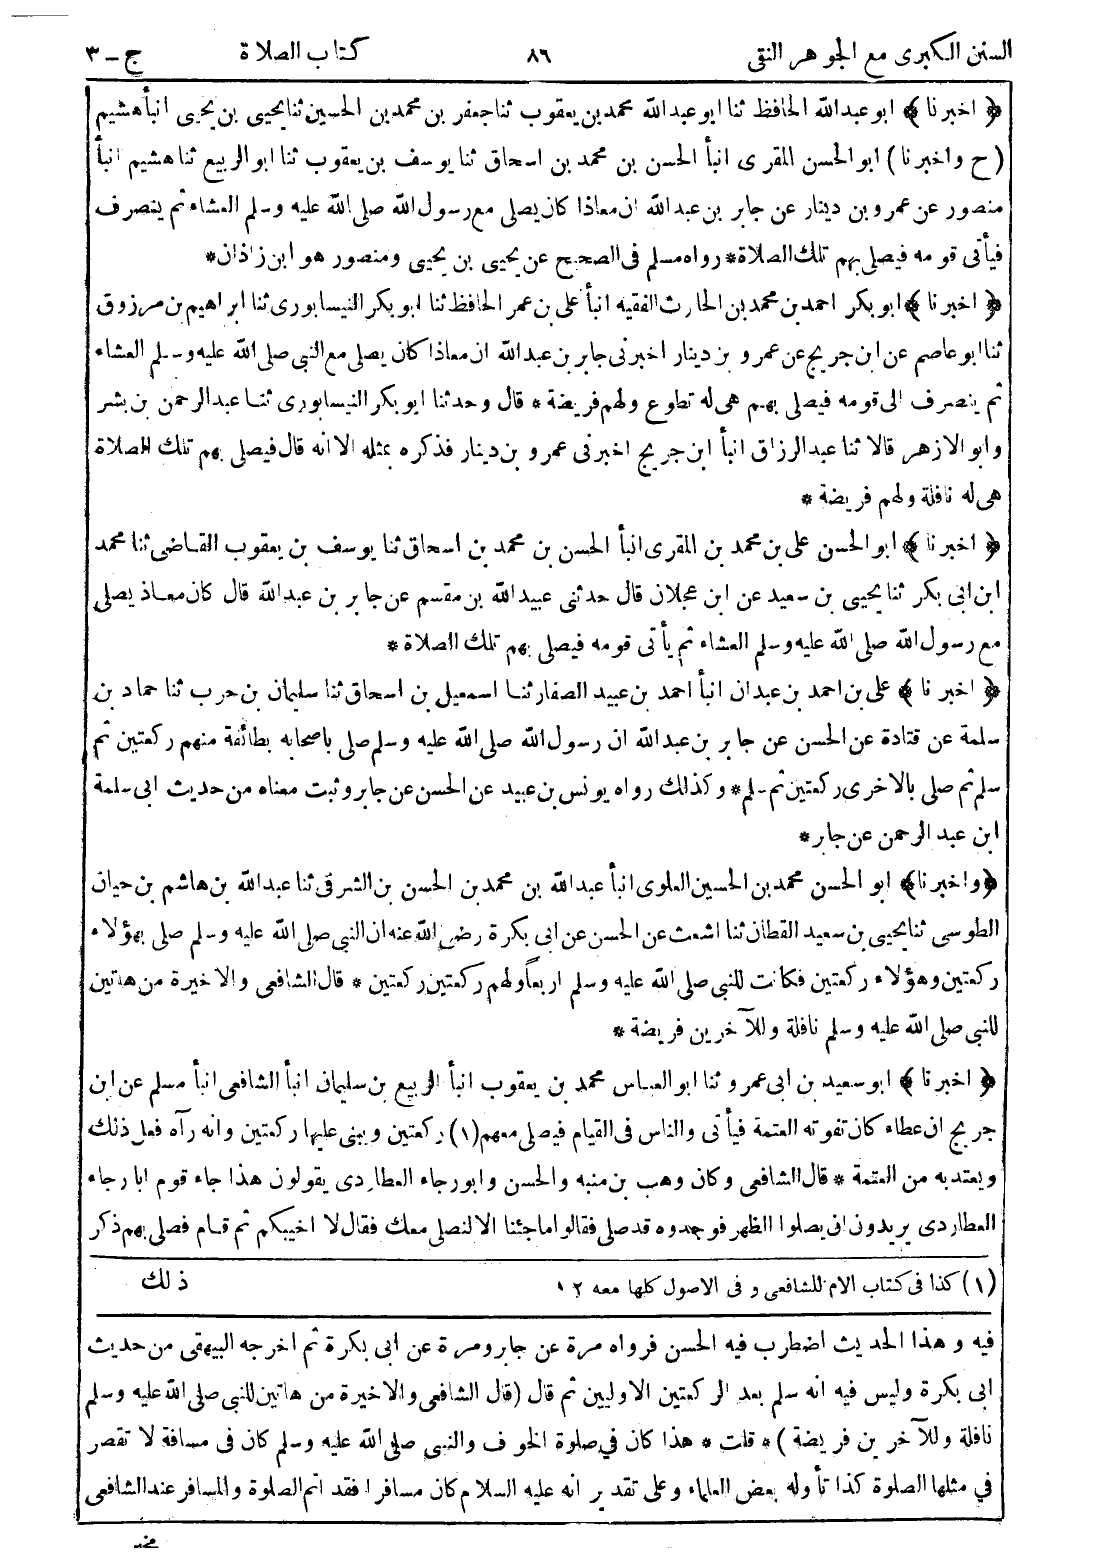 السنن الكبرى مع الجوهر النقى ٨٦ كتاب الصلاة ج - ٣
﴿ اخبرنا ﴾ ابو عبدالله الحافظ ثنا ابو عبدالله محمد بن يعقوب ثنا جعفر بن محمد بن الحسين ثنا يحيى بن يحيى انبأ هشيم
(ح واخبرنا) ابو الحسن المقرى انبأ الحسن بن محمد بن اسحاق ثنا يوسف بن يعقوب ثنا ابو الربيع ثنا هشيم انبأ
منصور عن عمرو بن دينار عن جابر بن عبدالله ان معاذا كان يصلى مع رسول الله صلى الله عليه وسلم العشاء ثم ينصرف
فيأتى قومه فيصلى بهم تلك الصلاة * رواه مسلم فى الصحيح عن يحيى بن يحيى ومنصور هو ابن زاذان *
﴿ اخبرنا ﴾ ابو بكر احمد بن محمد بن الحارث الفقيه انبأ على بن عمر الحافظ ثنا ابو بكر النيسابورى ثنا ابراهيم بن مرزوق
ثنا ابو عاصم عن ابن جريج عن عمرو بن دينار اخبرنى جابر بن عبدالله ان معاذا كان يصلى مع النبى صلى الله عليه وسلم العشاء
ثم ينصرف الى قومه فيصلى بهم هى له تطوع ولهم فريضة * قال وحدثنا ابو بكر النيسابورى ثنا عبدالرحمن بن بشر
وابو الازهر قالا ثنا عبدالرزاق انبأ ابن جريج اخبرنى عمرو بن دينار فذكره بمثله الا انه قال فيصلى بهم تلك الصلاة
هى له نافلة ولهم فريضة *
﴿ اخبرنا ﴾ ابو الحسن على بن محمد بن المقرى انبأ الحسن بن محمد بن اسحاق ثنا يوسف بن يعقوب القاضى ثنا محمد
ابن ابى بكر ثنا يحيى بن سعيد عن ابن عجلان قال حدثنى عبيد الله بن مقسم عن جابر بن عبدالله قال كان معاذ يصلى
مع رسول الله صلى الله عليه وسلم العشاء ثم يأتى قومه فيصلى بهم تلك الصلاة *
﴿ اخبرنا ﴾ على بن احمد بن عبدان انبأ احمد بن عبيد الصفار ثنا اسمعيل بن اسحاق ثنا سليمان بن حرب ثنا حماد بن
سلمة عن قتادة عن الحسن عن جابر بن عبدالله ان رسول الله صلى الله عليه وسلم صلى باصحابه بطائفة منهم ركعتين ثم
سلم ثم صلى بالاخرى ركعتين ثم سلم * وكذلك رواه يونس بن عبيد عن الحسن عن جابر وثبت معناه من حديث ابى سلمة
ابن عبد الرحمن عن جابر *
﴿ واخبرنا ﴾ ابو الحسن محمد بن الحسين العلوى انبأ عبدالله بن محمد بن الحسن بن الشرقى ثنا عبدالله بن هاشم بن حيان
الطوسى ثنا يحيى بن سعيد القطان ثنا اشعث عن الحسن عن ابى بكرة رضى الله عنه ان النبى صلى الله عليه وسلم صلى بهؤلاء
ركعتين وهؤلاء ركعتين فكانت للنبى صلى الله عليه وسلم اربعاً ولهم ركعتين ركعتين * قال الشافعى والاخيرة من هاتين
للنبى صلى الله عليه وسلم نافلة وللآخرين فريضة *
﴿ اخبرنا ﴾ ابو سعيد بن ابى عمرو ثنا ابو العباس محمد بن يعقوب انبأ الربيع بن سليمان انبأ الشافعى انبأ مسلم عن ابن
جريج ان عطاء كان تفوته العتمة فيأتى والناس فى القيام فيصلى معهم (١) ركعتين ويبنى عليها ركعتين وانه رآه فعل ذلك
ويعتد به من العتمة * قال الشافعى وكان وهب بن منبه والحسن وابو رجاء العطاردى يقولون هذا جاء قوم ابا رجاء
العطاردى يريدون ان يصلوا الظهر فوجدوه قد صلى فقالوا ما جئنا الا لنصلى معك فقال لا اخيبكم ثم قام فصلى بهم ذكر
(١) كذا فى كتاب الام للشافعى وفى الاصول كلها معه ١٢ ذلك
فيه وهذا الحديث اضطرب فيه الحسن فرواه مرة عن جابر ومرة عن ابى بكرة ثم اخرجه البيهقى من حديث
ابى بكرة وليس فيه انه سلم بعد الركعتين الاوليين ثم قال (قال الشافعى والاخيرة من هاتين للنبى صلى الله عليه وسلم
نافلة وللآخرين فريضة) * قلت * هذا كان فى صلوة الخوف والنبى صلى الله عليه وسلم كان فى مسافة لا تقصر
فى مثلها الصلوة كذا تأوله بعض العلماء وعلى تقدير انه عليه السلام كان مسافرا فقد اتم الصلوة والمسافر عند الشافعى
مخير